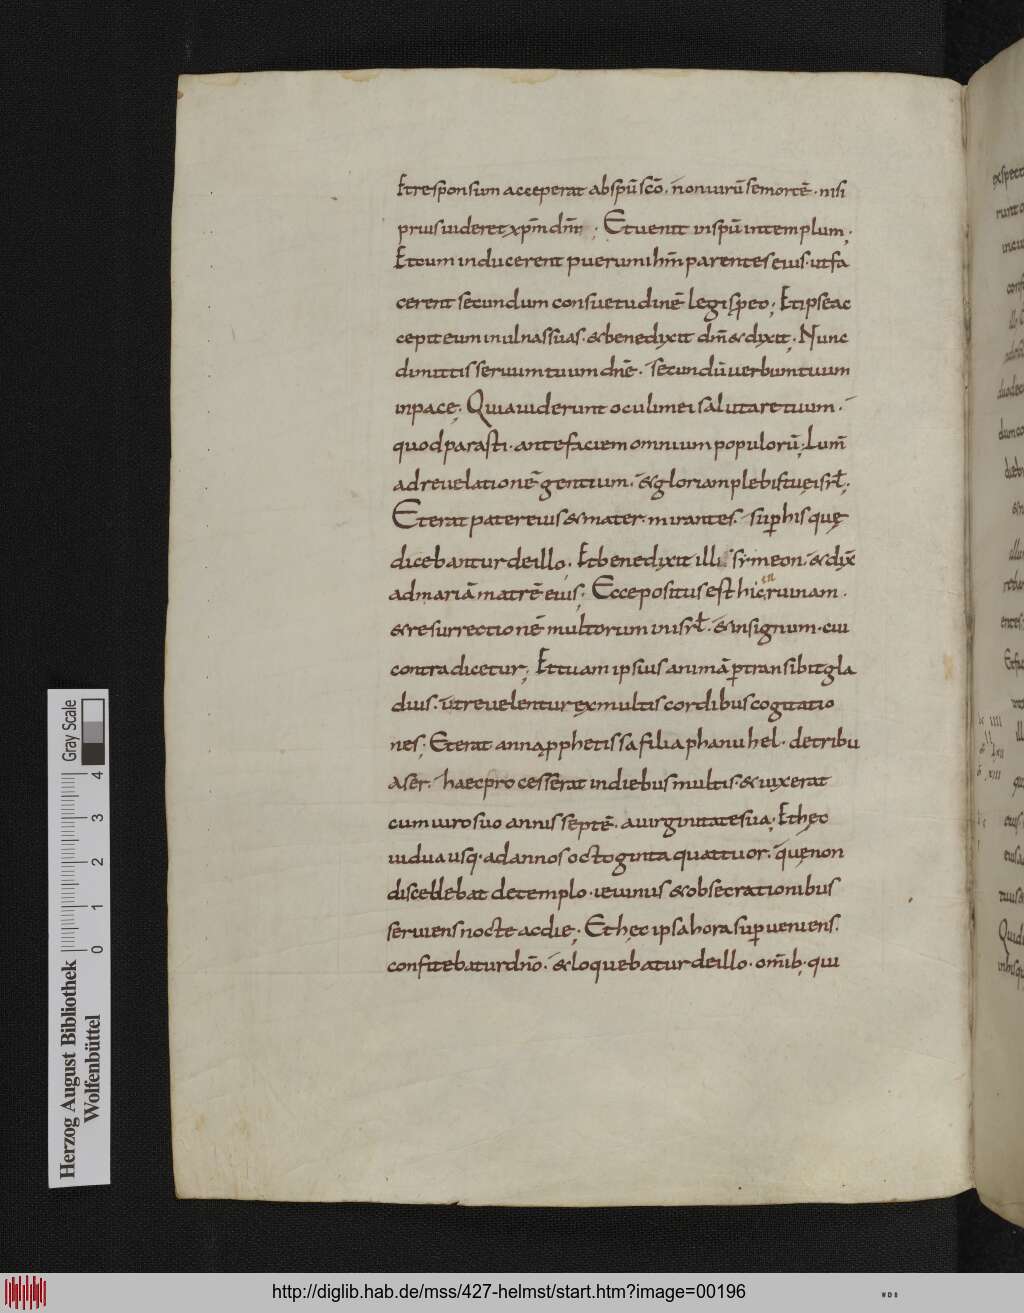 Et responsum acceperat ab spū scō. non uirū se mortē. nisi
prius uideret xpm̄ dnm̄; Et uenit in spū in templum;
Et cum inducerent puerum ihm̄ parentes eius. ut fa
cerent secundum consuetudinē legis p eo; Et ipse ac
cepit eum in ulnas suas. & benedixit dm̄ & dixit; Nunc
dimittis seruum tuum dnē. secundū uerbum tuum
in pace; Quia uiderunt oculi mei salutare tuum.
quod parasti. ante faciem omnium populorū; Lum̄
ad reuelationē gentium. & gloriam plebis tuę isrł;
Et erat pater eius & mater. mirantes. sup his quę
dicebantur de illo; Et benedixit illi symeon. & dix̄
ad mariā matrē eius; Ecce positus est hic in ruinam.
& resurrectionē multorum in isrł. & in signum. cui
contradicetur; Et tuam ipsius animā ptransibit gla
dius. ut reuelentur ex multis cordibus cogitatio
nes; Et erat anna pphetissa filia phanuhel. de tribu
aser. haec processerat in diebus multis. & uixerat
cum uiro suo annis septē. a uirginitate sua; Et hęc
uidua usq. ad annos octoginta quattuor. quę non
discedebat de templo. ieiuniis & obsecrationibus
seruiens nocte ac die; Et hęc ipsa hora sup ueniens.
confitebatur dnō. & loquebatur de illo. om̄ib; qui
Gray Scale
4 3 2 1 0
Herzog August Bibliothek
Wolfenbüttel
http://diglib.hab.de/mss/427-helmst/start.htm?image=00196